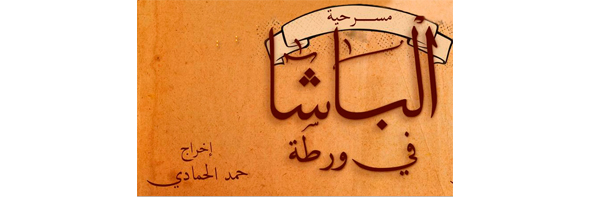 مسرحية
ألباشا
في ورطة
إخراج
حمد الحمادي